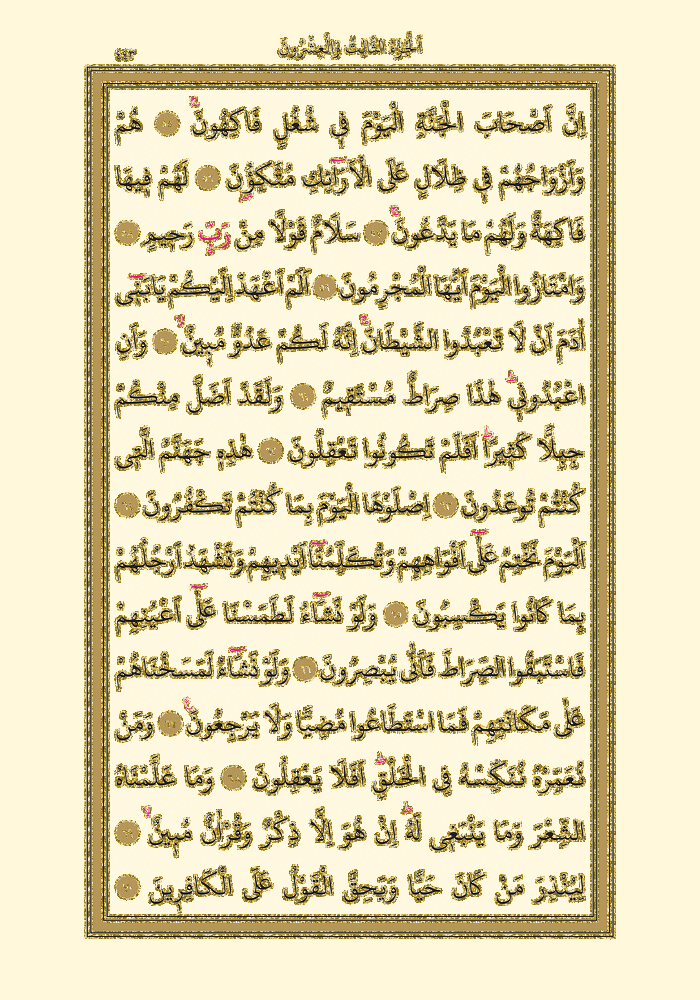 اَلْجُزْءُ الثَّالِثُ وَالْعِشْرُونَ
٤٤٣
اِنَّ اَصْحَابَ الْجَنَّةِ الْيَوْمَ فِي شُغُلٍ فَاكِهُونَۚ ﴿٥٥﴾ هُمْ
وَاَزْوَاجُهُمْ فِي ظِلَالٍ عَلَى الْاَرَٓائِكِ مُتَّكِؤُ۫نَ ﴿٥٦﴾ لَهُمْ فِيهَا
فَاكِهَةٌ وَلَهُمْ مَا يَدَّعُونَۚ ﴿٥٧﴾ سَلَامٌ قَوْلًا مِنْ رَبٍّ رَحِيمٍ ﴿٥٨﴾
وَامْتَازُوا الْيَوْمَ اَيُّهَا الْمُجْرِمُونَ ﴿٥٩﴾ اَلَمْ اَعْهَدْ اِلَيْكُمْ يَا بَنِٓي
اٰدَمَ اَنْ لَا تَعْبُدُوا الشَّيْطَانَۚ اِنَّهُ لَكُمْ عَدُوٌّ مُبِينٌۙ ﴿٦٠﴾ وَاَنِ
اعْبُدُونِيۜ هٰذَا صِرَاطٌ مُسْتَقِيمٌ ﴿٦١﴾ وَلَقَدْ اَضَلَّ مِنْكُمْ
جِبِلًّا كَثِيرًاۜ اَفَلَمْ تَكُونُوا تَعْقِلُونَ ﴿٦٢﴾ هٰذِهِ جَهَنَّمُ الَّتِي
كُنْتُمْ تُوعَدُونَ ﴿٦٣﴾ اِصْلَوْهَا الْيَوْمَ بِمَا كُنْتُمْ تَكْفُرُونَ ﴿٦٤﴾
اَلْيَوْمَ نَخْتِمُ عَلٰٓى اَفْوَاهِهِمْ وَتُكَلِّمُنَٓا اَيْدِيهِمْ وَتَشْهَدُ اَرْجُلُهُمْ
بِمَا كَانُوا يَكْسِبُونَ ﴿٦٥﴾ وَلَوْ نَشَٓاءُ لَطَمَسْنَا عَلٰٓى اَعْيُنِهِمْ
فَاسْتَبَقُوا الصِّرَاطَ فَاَنّٰى يُبْصِرُونَ ﴿٦٦﴾ وَلَوْ نَشَٓاءُ لَمَسَخْنَاهُمْ
عَلٰى مَكَانَتِهِمْ فَمَا اسْتَطَاعُوا مُضِيًّا وَلَا يَرْجِعُونَ۟ ﴿٦٧﴾ وَمَنْ
نُعَمِّرْهُ نُنَكِّسْهُ فِي الْخَلْقِۜ اَفَلَا يَعْقِلُونَ ﴿٦٨﴾ وَمَا عَلَّمْنَاهُ
الشِّعْرَ وَمَا يَنْبَغِي لَهُۜ اِنْ هُوَ اِلَّا ذِكْرٌ وَقُرْاٰنٌ مُبِينٌۙ ﴿٦٩﴾
لِيُنْذِرَ مَنْ كَانَ حَيًّا وَيَحِقَّ الْقَوْلُ عَلَى الْكَافِرِينَ ﴿٧٠﴾